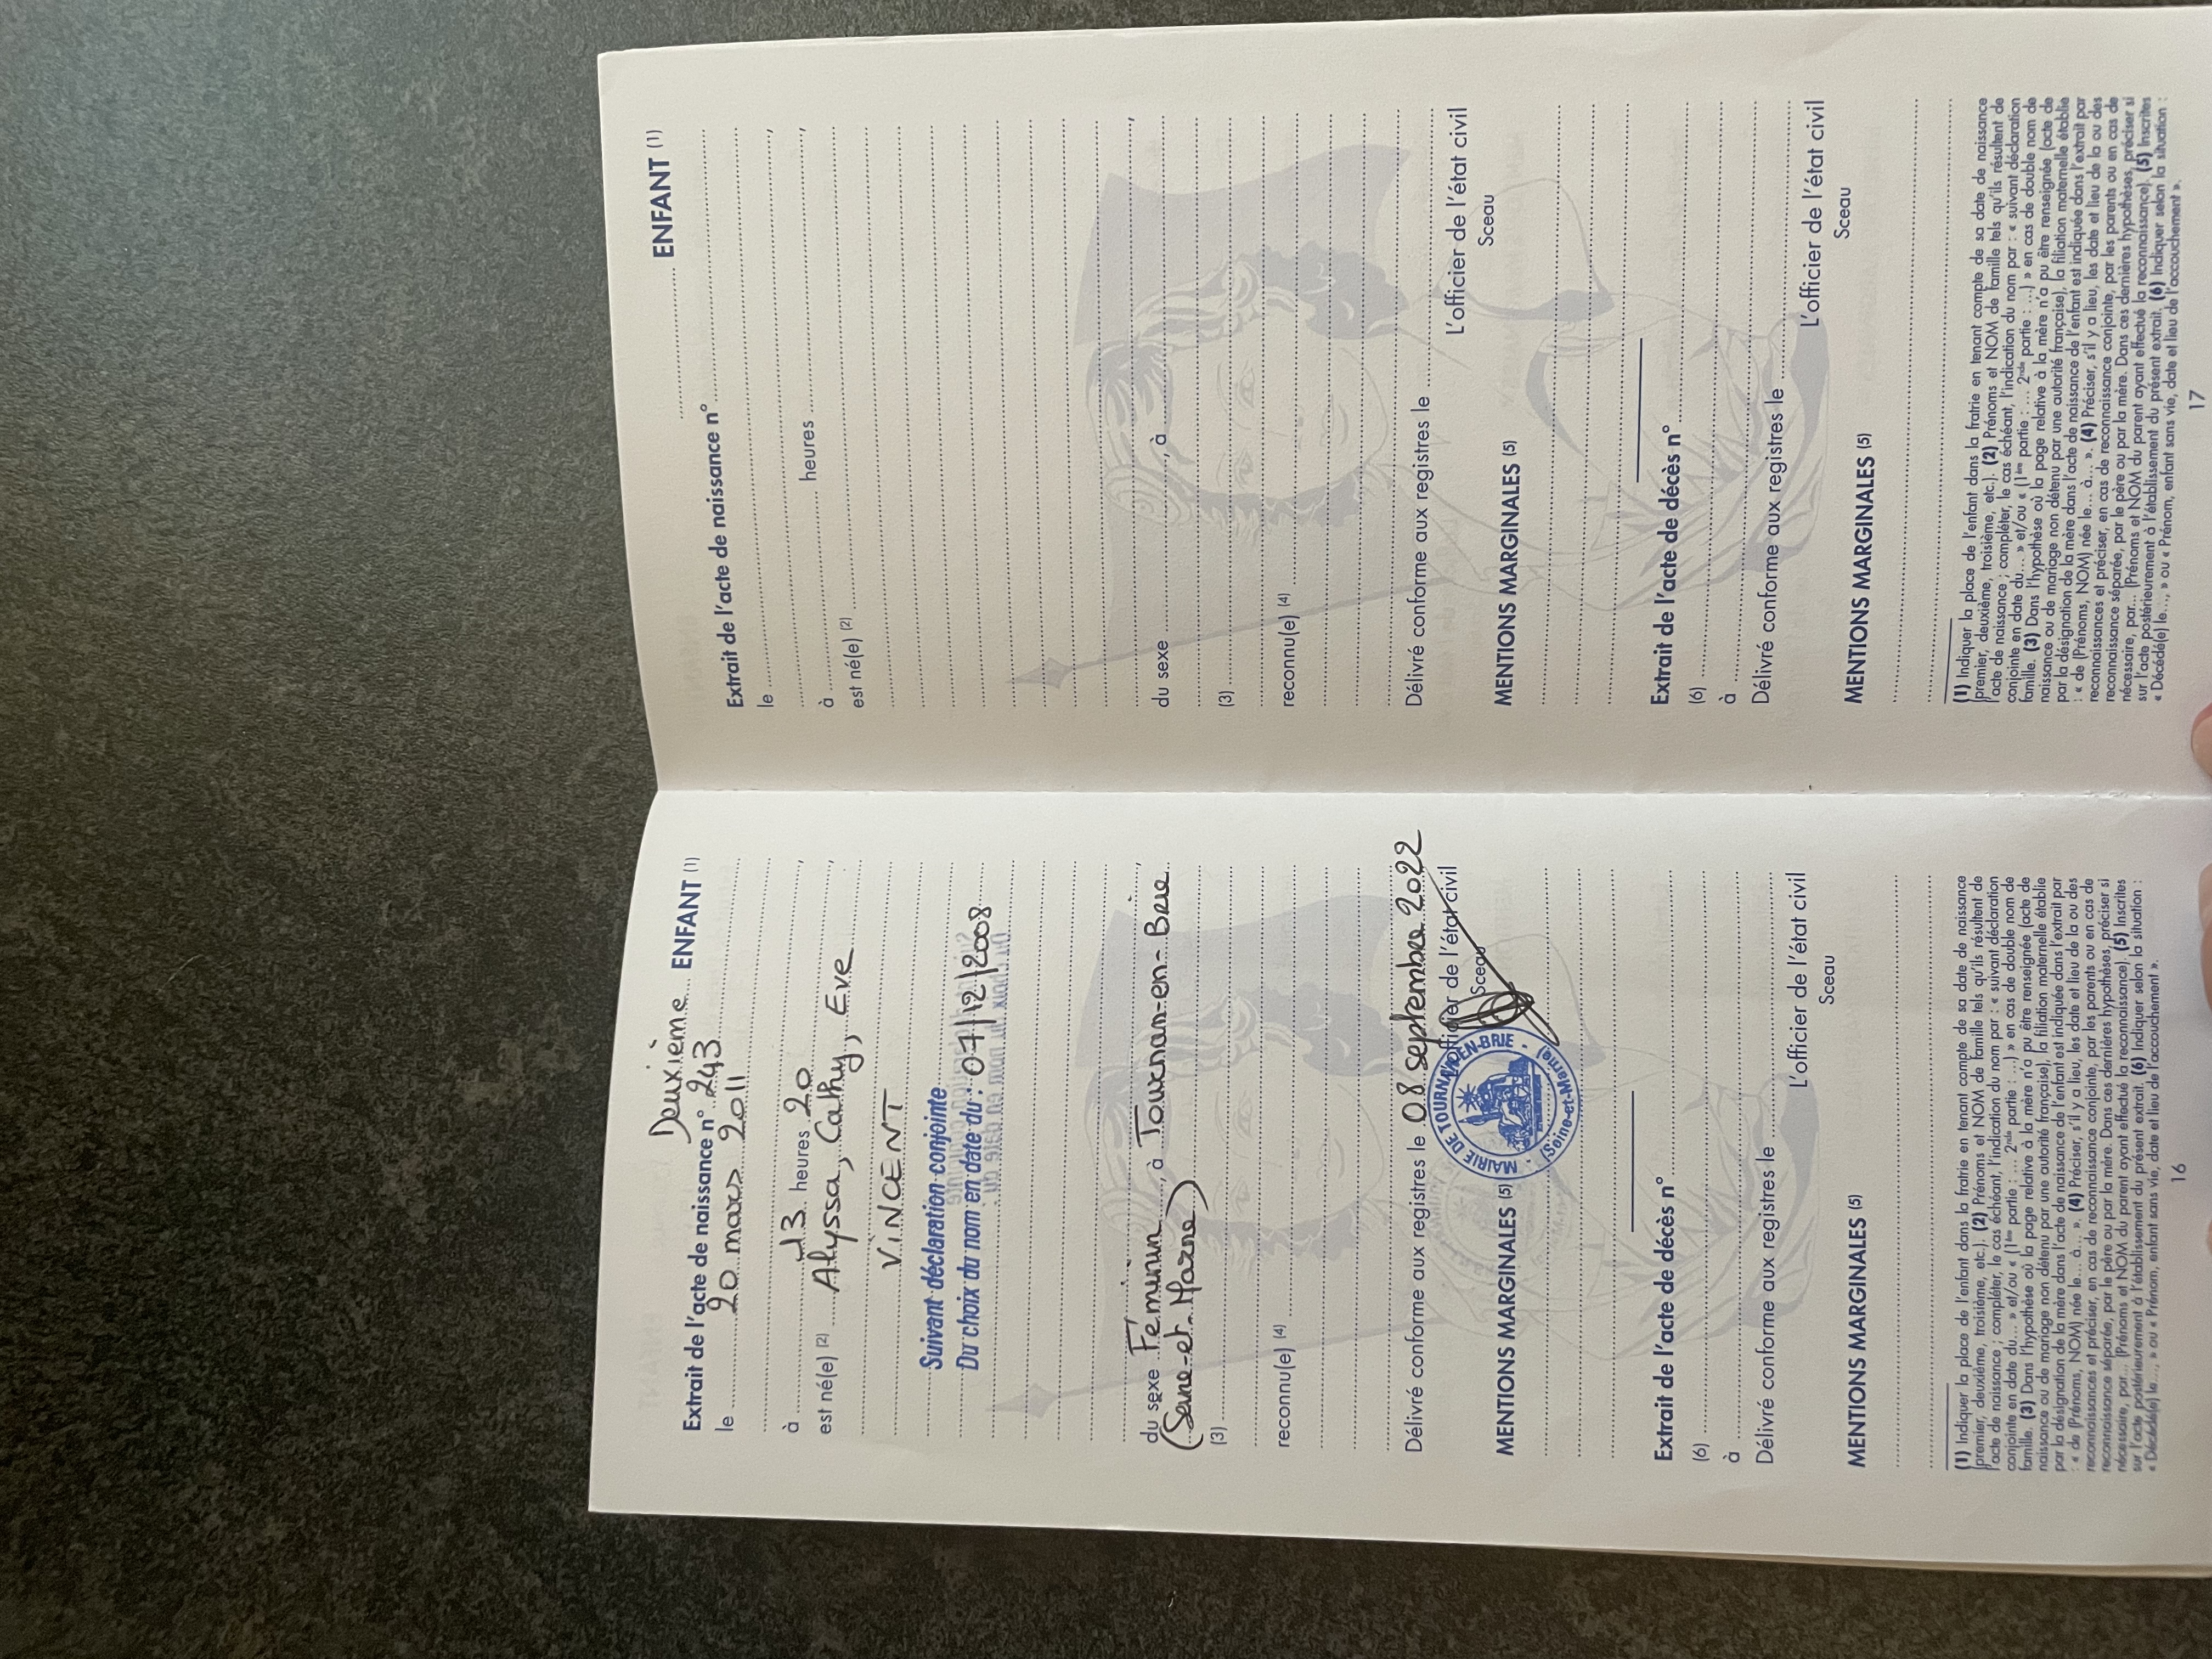 Deuxième ENFANT (1)
Extrait de l'acte de naissance n° 243
le 20 mars 2011
à 13 heures 20,
est né(e) (2) Alyssa, Cathy, Eve,
VINCENT
Suivant déclaration conjointe
Du choix du nom en date du : 07/12/2008
du sexe Féminin, à Tournan-en-Brie
(Seine-et-Marne)
(3)
reconnu(e) (4)
Délivré conforme aux registres le 08 septembre 2022
L'officier de l'état civil
Sceau
MAIRIE DE TOURNAN-EN-BRIE
(Seine-et-Marne)
MENTIONS MARGINALES (5)
Extrait de l'acte de décès n°
(6)
à
Délivré conforme aux registres le
L'officier de l'état civil
Sceau
MENTIONS MARGINALES (5)
(1) Indiquer la place de l'enfant dans la fratrie en tenant compte de sa date de naissance
(premier, deuxième, troisième, etc.). (2) Prénoms et NOM de famille tels qu'ils résultent de
l'acte de naissance ; compléter, le cas échéant, l'indication du nom par : « suivant déclaration
conjointe en date du... » et/ou « (1ère partie : ... 2nde partie : ...) » en cas de double nom de
famille. (3) Dans l'hypothèse où la page relative à la mère n'a pu être renseignée (acte de
naissance ou de mariage non détenu par une autorité française), la filiation maternelle établie
par la désignation de la mère dans l'acte de naissance de l'enfant est indiquée dans l'extrait par
: « de (Prénoms, NOM) née le... à... ». (4) Préciser, s'il y a lieu, les date et lieu de la ou des
reconnaissances et préciser, en cas de reconnaissance conjointe, par les parents ou en cas de
reconnaissance séparée, par le père ou par la mère. Dans ces dernières hypothèses, préciser si
nécessaire, par... (Prénoms et NOM du parent ayant effectué la reconnaissance). (5) Inscrites
sur l'acte postérieurement à l'établissement du présent extrait. (6) Indiquer selon la situation :
« Décédé(e) le..., » ou « Prénom, enfant sans vie, date et lieu de l'accouchement ».
16
ENFANT (1)
Extrait de l'acte de naissance n°
le
à heures
est né(e) (2)
du sexe , à
(3)
reconnu(e) (4)
Délivré conforme aux registres le
L'officier de l'état civil
Sceau
MENTIONS MARGINALES (5)
Extrait de l'acte de décès n°
(6)
à
Délivré conforme aux registres le
L'officier de l'état civil
Sceau
MENTIONS MARGINALES (5)
(1) Indiquer la place de l'enfant dans la fratrie en tenant compte de sa date de naissance
(premier, deuxième, troisième, etc.). (2) Prénoms et NOM de famille tels qu'ils résultent de
l'acte de naissance ; compléter, le cas échéant, l'indication du nom par : « suivant déclaration
conjointe en date du... » et/ou « (1ère partie : ... 2nde partie : ...) » en cas de double nom de
famille. (3) Dans l'hypothèse où la page relative à la mère n'a pu être renseignée (acte de
naissance ou de mariage non détenu par une autorité française), la filiation maternelle établie
par la désignation de la mère dans l'acte de naissance de l'enfant est indiquée dans l'extrait par
: « de (Prénoms, NOM) née le... à... ». (4) Préciser, s'il y a lieu, les date et lieu de la ou des
reconnaissances et préciser, en cas de reconnaissance conjointe, par les parents ou en cas de
reconnaissance séparée, par le père ou par la mère. Dans ces dernières hypothèses, préciser si
nécessaire, par... (Prénoms et NOM du parent ayant effectué la reconnaissance). (5) Inscrites
sur l'acte postérieurement à l'établissement du présent extrait. (6) Indiquer selon la situation :
« Décédé(e) le..., » ou « Prénom, enfant sans vie, date et lieu de l'accouchement ».
17